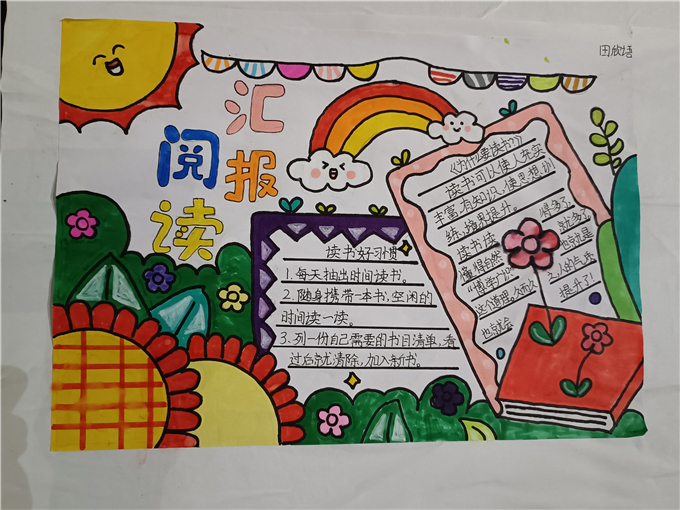 田欣
阅读
汇报
读书好习惯
1.每天抽出时间读书。
2.随身携带一本书,空闲的
时间读一读。
3.列一份自己需要的书目清单,看
过后就清除,加入新书。
《为什么要读书?》
读书可以使人充实
丰富有知识,使思想训
练,境界提升。
读书读得多了,
懂得自然就多了,
这个道理
也就会
人的气质
提升了!